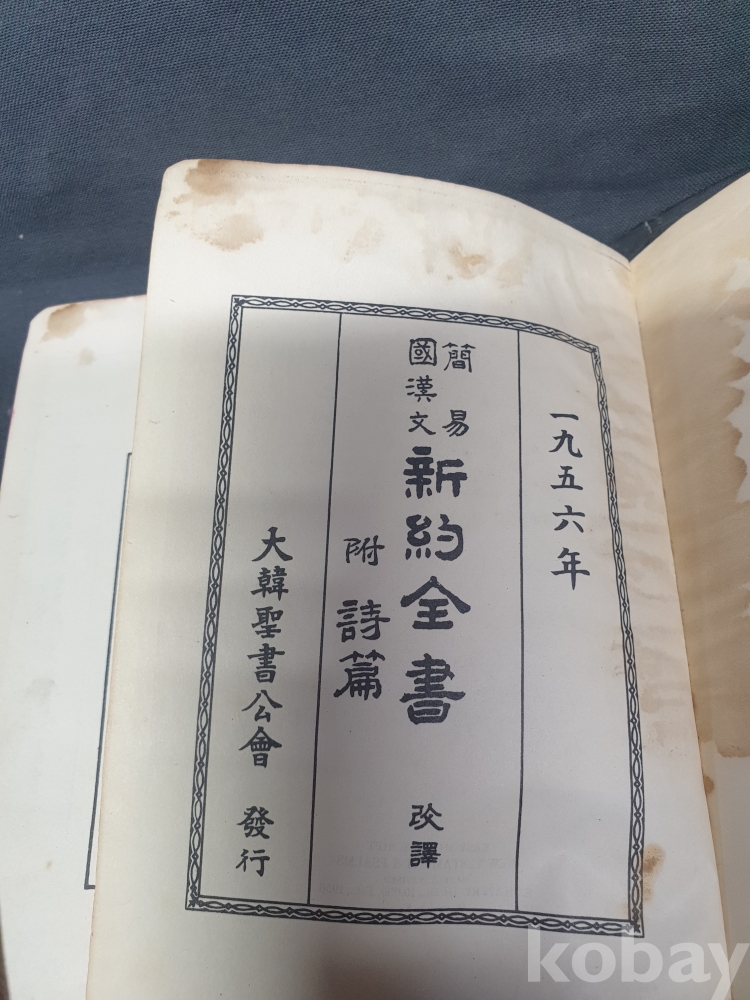 一九五六年
簡易
國漢文
新約全書 改譯
附 詩篇
大韓聖書公會 發行
kobay